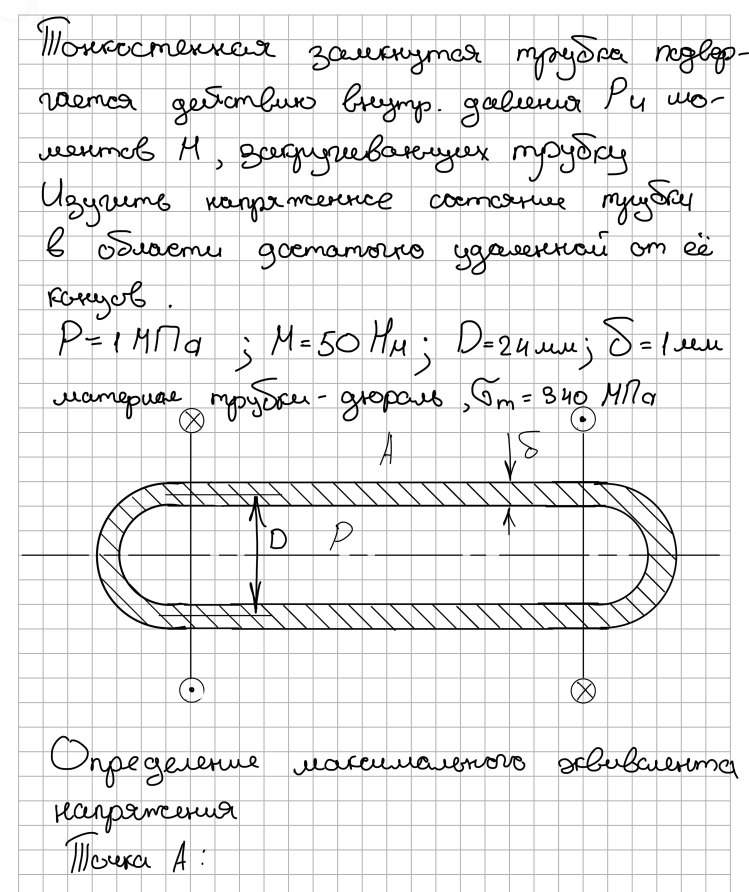 Тонкостенная замкнутая трубка подвер-
гается действию внутр. давления P и мо-
ментов M, закручивающих трубку
Изучить напряженное состояние трубки
в области достаточно удаленной от её
концов.
P=1 МПа ; M=50 Нм ; D=24мм; δ=1мм
материал трубки - дюраль, σт = 340 МПа
A
δ
D
P
Определение максимального эквивалента
напряжения
Точка A :